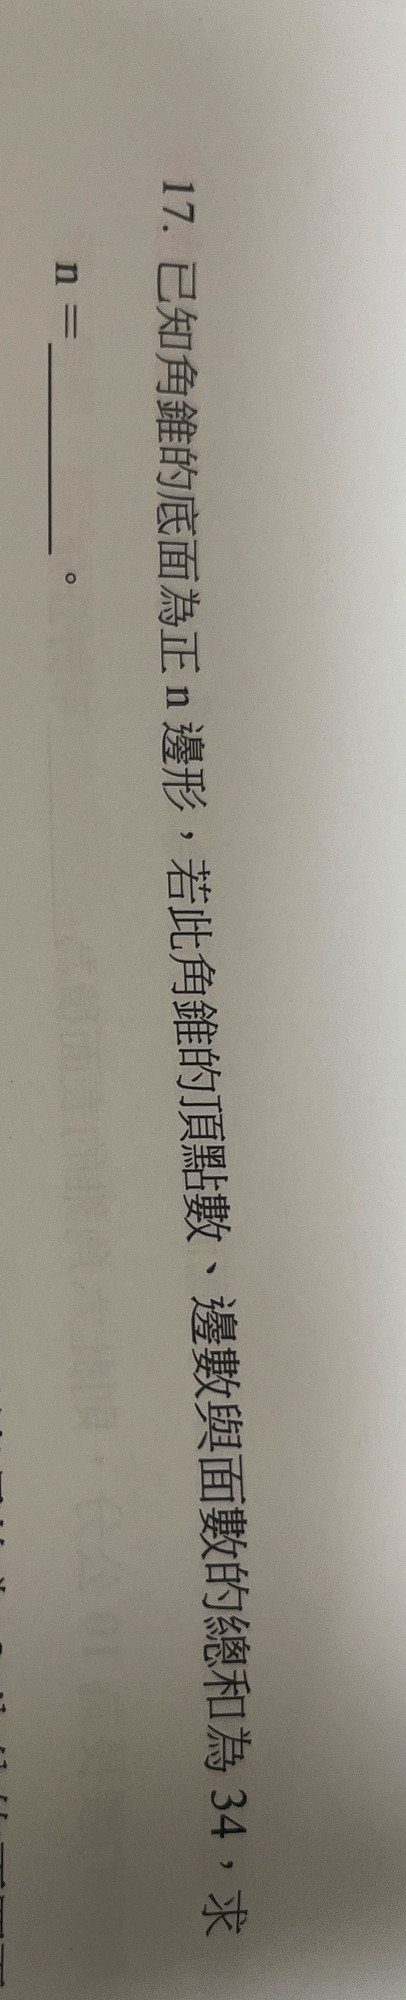 17. 已知角錐的底面為正 n 邊形，若此角錐的頂點數、邊數與面數的總和為 34，求
n = ________。